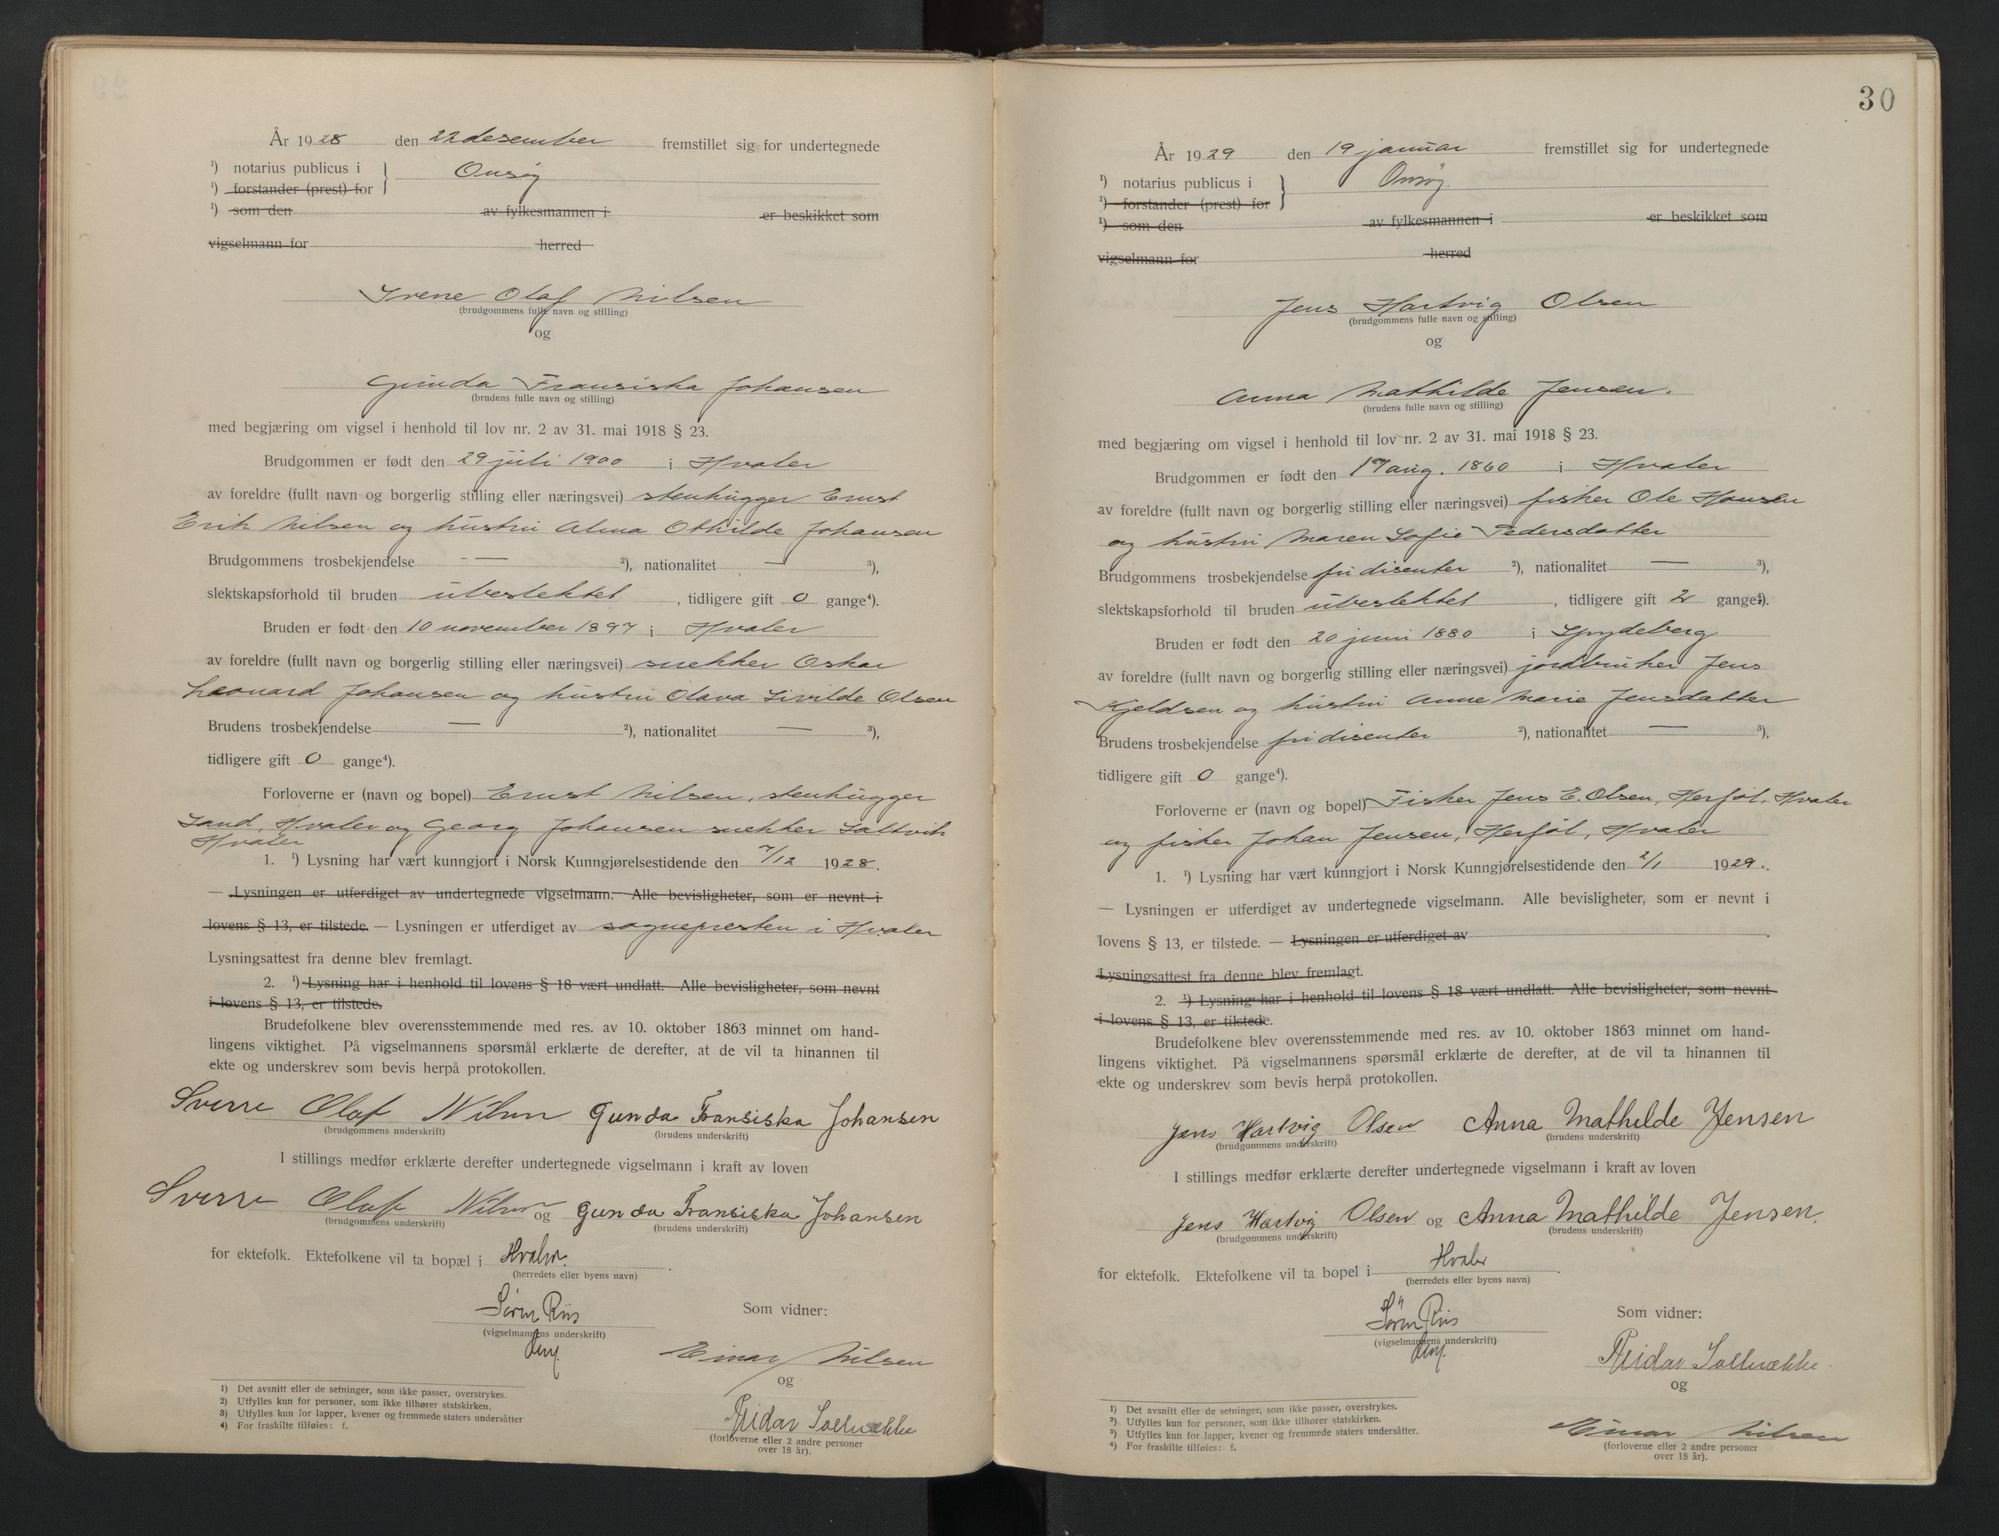 År 1928 den 22 desember fremstillet sig for undertegnede
¹) notarius publicus i Onsøy
¹) forstander (prest) for
¹) som den av fylkesmannen i er beskikket som
vigselmann for herred
Sverre Olaf Nilsen
(brudgommens fulle navn og stilling)
og
Gunda Fransiska Johansen
(brudens fulle navn og stilling)
med begjæring om vigsel i henhold til lov nr. 2 av 31. mai 1918 § 23.
Brudgommen er født den 29 juli 1900 i Hvaler
av foreldre (fullt navn og borgerlig stilling eller næringsvei) stenhugger Ernst
Erik Nilsen og hustru Alma Othilde Johansen
Brudgommens trosbekjendelse — ²), nationalitet — ³),
slektskapsforhold til bruden ubeslektet, tidligere gift 0 gange⁴).
Bruden er født den 10 november 1897 i Hvaler
av foreldre (fullt navn og borgerlig stilling eller næringsvei) snekker Oskar
Leonard Johansen og hustru Olava Sivilde Olsen
Brudens trosbekjendelse — ²), nationalitet — ³),
tidligere gift 0 gange⁴).
Forloverne er (navn og bopel) Ernst Nilsen, stenhugger
Sand, Hvaler og Georg Johansen snekker Saltvik
Hvaler
1. ¹) Lysning har vært kunngjort i Norsk Kunngjørelsestidende den 7/12 1928.
— Lysningen er utferdiget av undertegnede vigselmann. Alle bevisligheter, som er nevnt i
lovens § 13, er tilstede. — Lysningen er utferdiget av sognepresten i Hvaler
Lysningsattest fra denne blev fremlagt.
2. ¹) Lysning har i henhold til lovens § 18 vært undlatt. Alle bevisligheter, som nevnt
i lovens § 13, er tilstede.
Brudefolkene blev overensstemmende med res. av 10. oktober 1863 minnet om hand-
lingens viktighet. På vigselmannens spørsmål erklærte de derefter, at de vil ta hinannen til
ekte og underskrev som bevis herpå protokollen.
Sverre Olaf Nilsen Gunda Fransiska Johansen
(brudgommens underskrift) (brudens underskrift)
I stillings medfør erklærte derefter undertegnede vigselmann i kraft av loven
Sverre Olaf Nilsen og Gunda Fransiska Johansen
(brudgommens underskrift) (brudens underskrift)
for ektefolk. Ektefolkene vil ta bopæl i Hvaler.
(herredets eller byens navn)
Søren Riis Som vidner:
(vigselmannens underskrift)
Einar Nilsen
og
Reidar Solbrække
(forloverne eller 2 andre personer
over 18 år).
1) Det avsnitt eller de setninger, som ikke passer, overstrykes.
2) Utfylles kun for personer, som ikke tilhører statskirken.
3) Utfylles kun for lapper, kvener og fremmede staters undersåtter
4) For fraskilte tilføies: f.
30
År 1929 den 19 januar fremstillet sig for undertegnede
¹) notarius publicus i Onsøy.
¹) forstander (prest) for
¹) som den av fylkesmannen i er beskikket som
vigselmann for herred
Jens Hartvig Olsen
(brudgommens fulle navn og stilling)
og
Anna Mathilde Jensen.
(brudens fulle navn og stilling)
med begjæring om vigsel i henhold til lov nr. 2 av 31. mai 1918 § 23.
Brudgommen er født den 17 aug. 1860 i Hvaler
av foreldre (fullt navn og borgerlig stilling eller næringsvei) fisker Ole Hansen
og hustru Maren Sofie Pedersdatter
Brudgommens trosbekjendelse fri disenter ²), nationalitet — ³),
slektskapsforhold til bruden ubeslektet, tidligere gift 2 gange⁴).
Bruden er født den 20 juni 1880 i Spydeberg
av foreldre (fullt navn og borgerlig stilling eller næringsvei) jordbruker Jens
Kjeldsen og hustru Anne Marie Jensdatter
Brudens trosbekjendelse fri disenter ²), nationalitet — ³),
tidligere gift 0 gange⁴).
Forloverne er (navn og bopel) Fisker Jens E. Olsen, Herføl, Hvaler
og fisker Johan Jensen, Herføl, Hvaler
1. ¹) Lysning har vært kunngjort i Norsk Kunngjørelsestidende den 2/1 1929.
— Lysningen er utferdiget av undertegnede vigselmann. Alle bevisligheter, som er nevnt i
lovens § 13, er tilstede. — Lysningen er utferdiget av
Lysningsattest fra denne blev fremlagt.
2. ¹) Lysning har i henhold til lovens § 18 vært undlatt. Alle bevisligheter, som nevnt
i lovens § 13, er tilstede.
Brudefolkene blev overensstemmende med res. av 10. oktober 1863 minnet om hand-
lingens viktighet. På vigselmannens spørsmål erklærte de derefter, at de vil ta hinannen til
ekte og underskrev som bevis herpå protokollen.
Jens Hartvig Olsen Anna Mathilde Jensen
(brudgommens underskrift) (brudens underskrift)
I stillings medfør erklærte derefter undertegnede vigselmann i kraft av loven
Jens Hartvig Olsen og Anna Mathilde Jensen.
(brudgommens underskrift) (brudens underskrift)
for ektefolk. Ektefolkene vil ta bopel i Hvaler
(herredets eller byens navn)
Søren Riis Som vidner:
(vigselmannens underskrift)
Reidar Solbrække.
og
Einar Nilsen
(forloverne eller 2 andre personer
over 18 år).
1) Det avsnitt eller de setninger, som ikke passer, overstrykes.
2) Utfylles kun for personer, som ikke tilhører statskirken.
3) Utfylles kun for lapper, kvener og fremmede staters undersåtter.
4) For fraskilte tilføies: f.